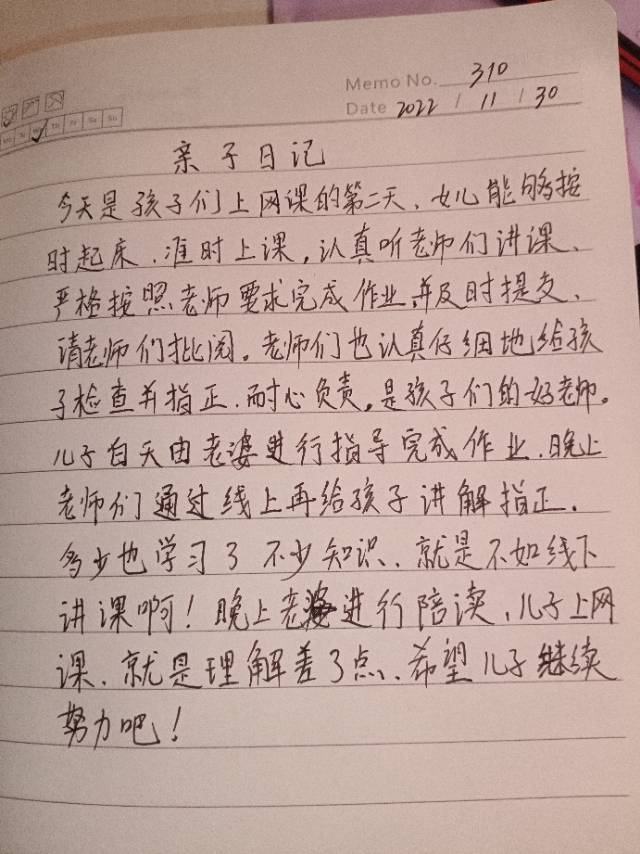 Memo No. 310
Date 2022 / 11 / 30
亲子日记
今天是孩子们上网课的第二天、女儿能够按
时起床、准时上课,认真听老师们讲课、
严格按照老师要求完成作业,并及时提交、
请老师们批阅。老师们也认真仔细地给孩
子检查并指正、耐心负责。是孩子们的好老师。
儿子白天由老婆进行指导完成作业、晚上
老师们通过线上再给孩子讲解指正、
多少也学习了不少知识、就是不如线下
讲课啊!晚上老婆进行陪读、儿子上网
课、就是理解差了点、希望儿子继续
努力吧!